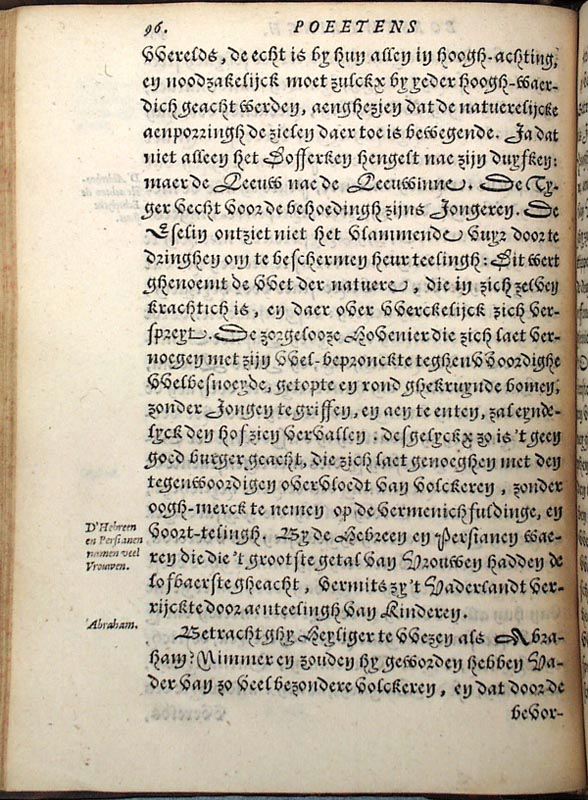 96. POEETENS
VVerelds, de echt is by hun allen in hoogh-achting,
en noodzakelijck moet zulckx by yeder hoogh-waer-
dich geacht werden, aenghezien dat de natuerelijcke
aenporringh de zielen daer toe is bewegende. Ja dat
niet alleen het Dofferken hengelt nae zijn duyfken:
maer de Leeuw nae de Leeuwinne. De Ty-
ger vecht voor de behoedingh zijns Jongeren. De
Eselin ontziet niet het vlammende vuyr door te
dringhen om te beschermen heur teelingh: Dit wert
ghenoemt de VVet der natuere, die in zich zelven
krachtich is, en daer over VVerckelijck zich ver-
spreyt. De zorgelooze Hovenier die zich laet ver-
noegen met zijn VVel-bepronckte teghenVVoordighe
VVelbesnoeyde, getopte en rond ghekruynde bomen,
zonder Jongen te griffen, en aen te enten, zal eynde-
lyck den hof zien vervallen: desgelyckx zo is 't geen
goed burger geacht, die zich laet genoeghen met den
tegenwoordigen overvloedt van volckeren, zonder
oogh-merck te nemen op de vermenichfuldinge, en
voort-telingh. By de Hebreen en Persianen wae-
ren die die 't grootste getal van Vrouwen hadden de
lofbaerste gheacht, vermits zy 't Vaderlandt ver-
rijckte door aenteelingh van Kinderen.
D'Hebreen
en Persianen
namen veel
Vrouwen.
Betracht ghy Heyliger te VVezen als Abra-
ham? Nimmer en zouden hy geworden hebben Va-
der van zo veel bezondere volckeren, en dat door de
Abraham.
bevor-